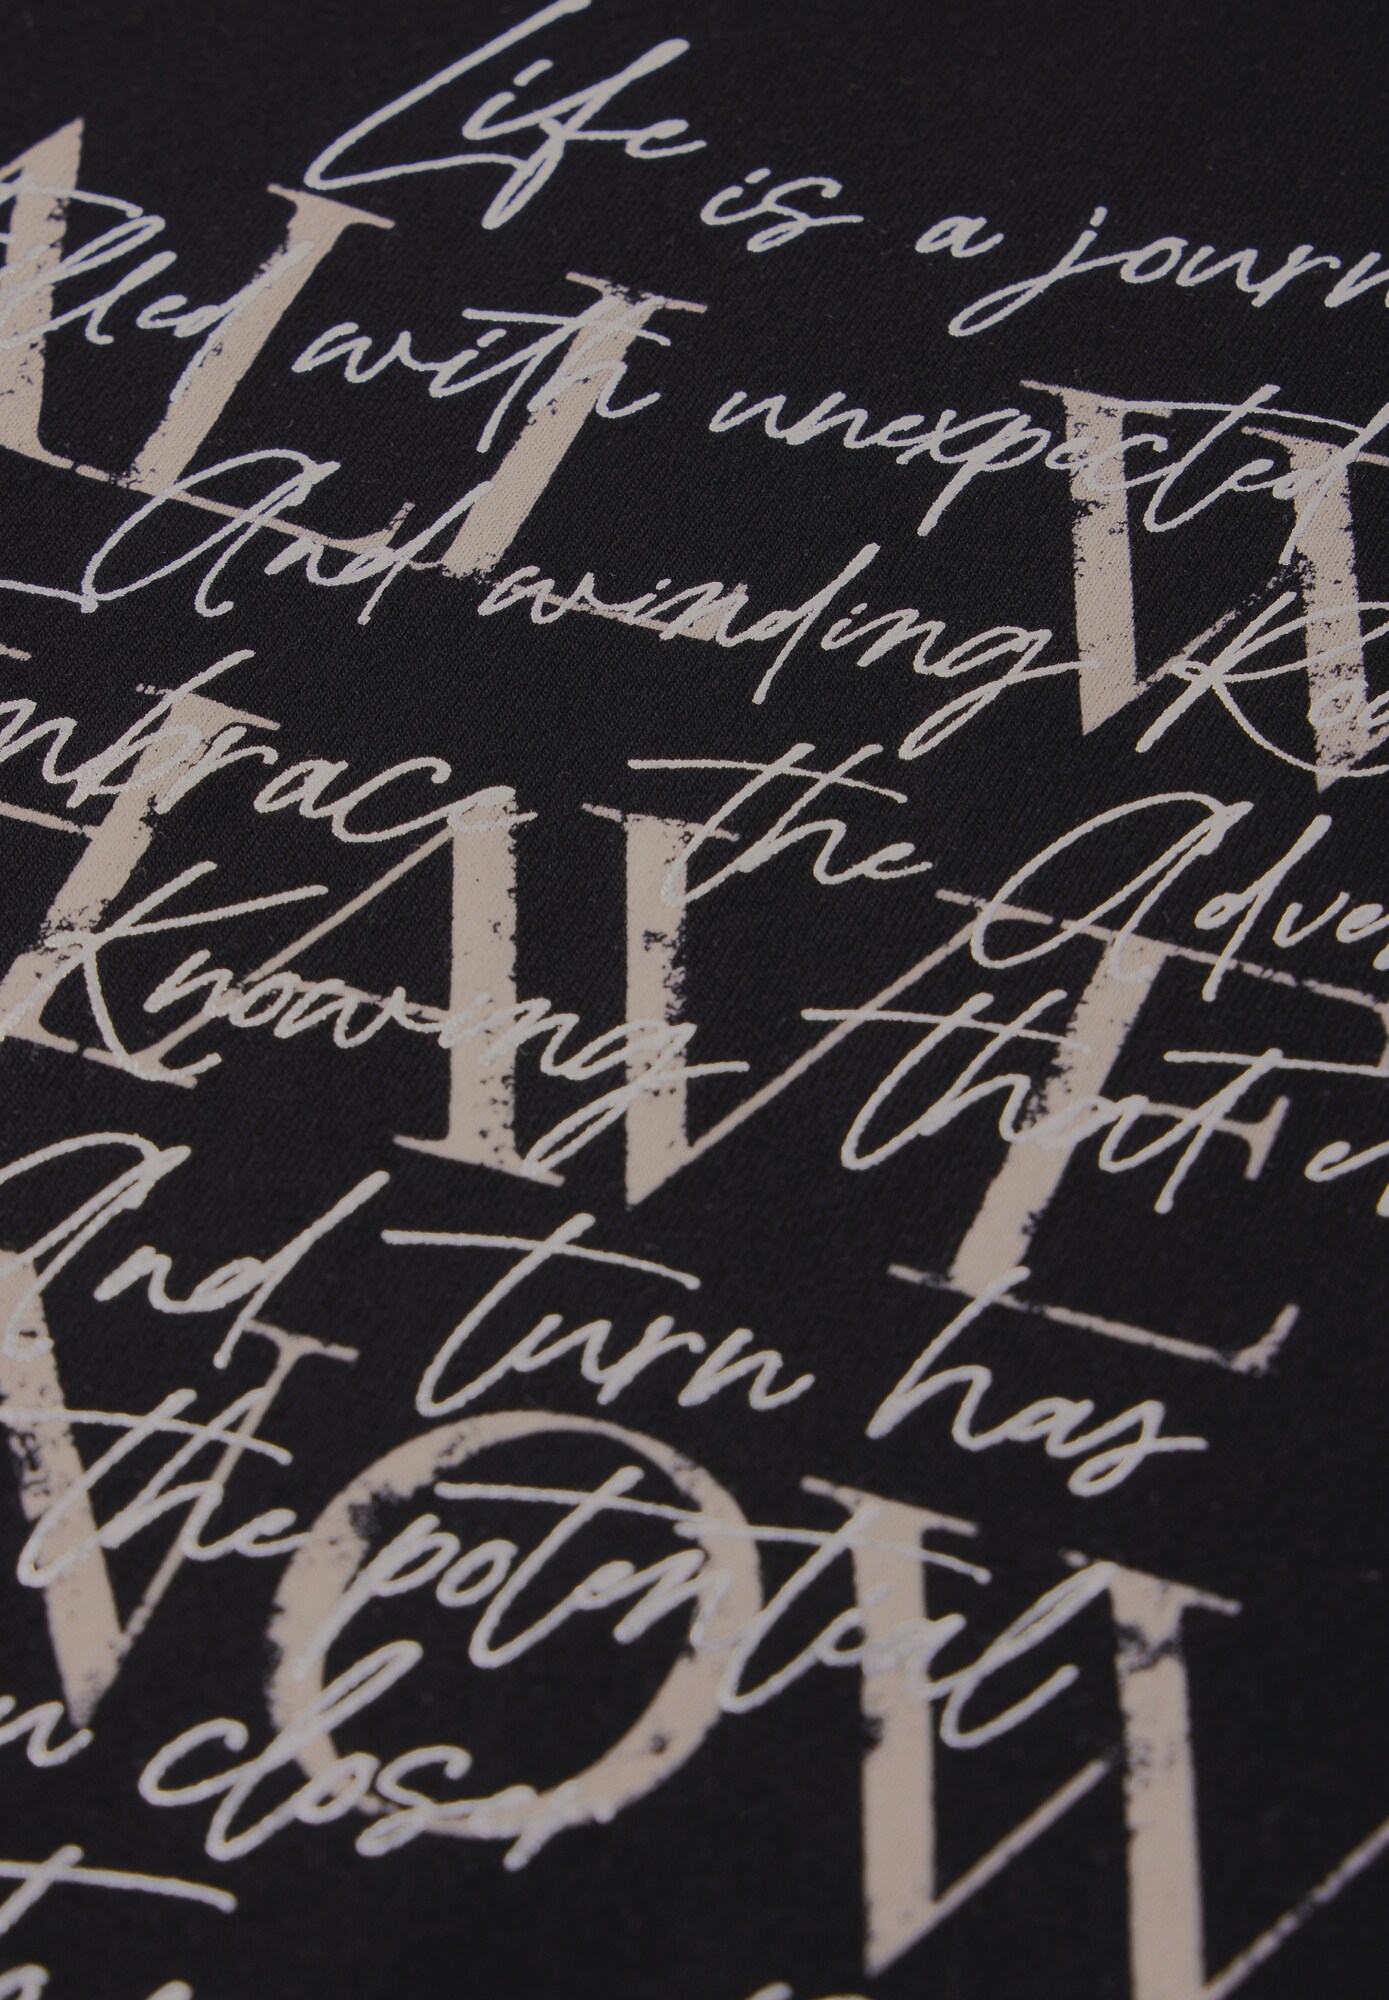 Life is a journ
lled with unexpected
And winding Roa
mbrace the Adve
Knowing that
And turn has
the potential
closer
ALL W
HAVE
NOW